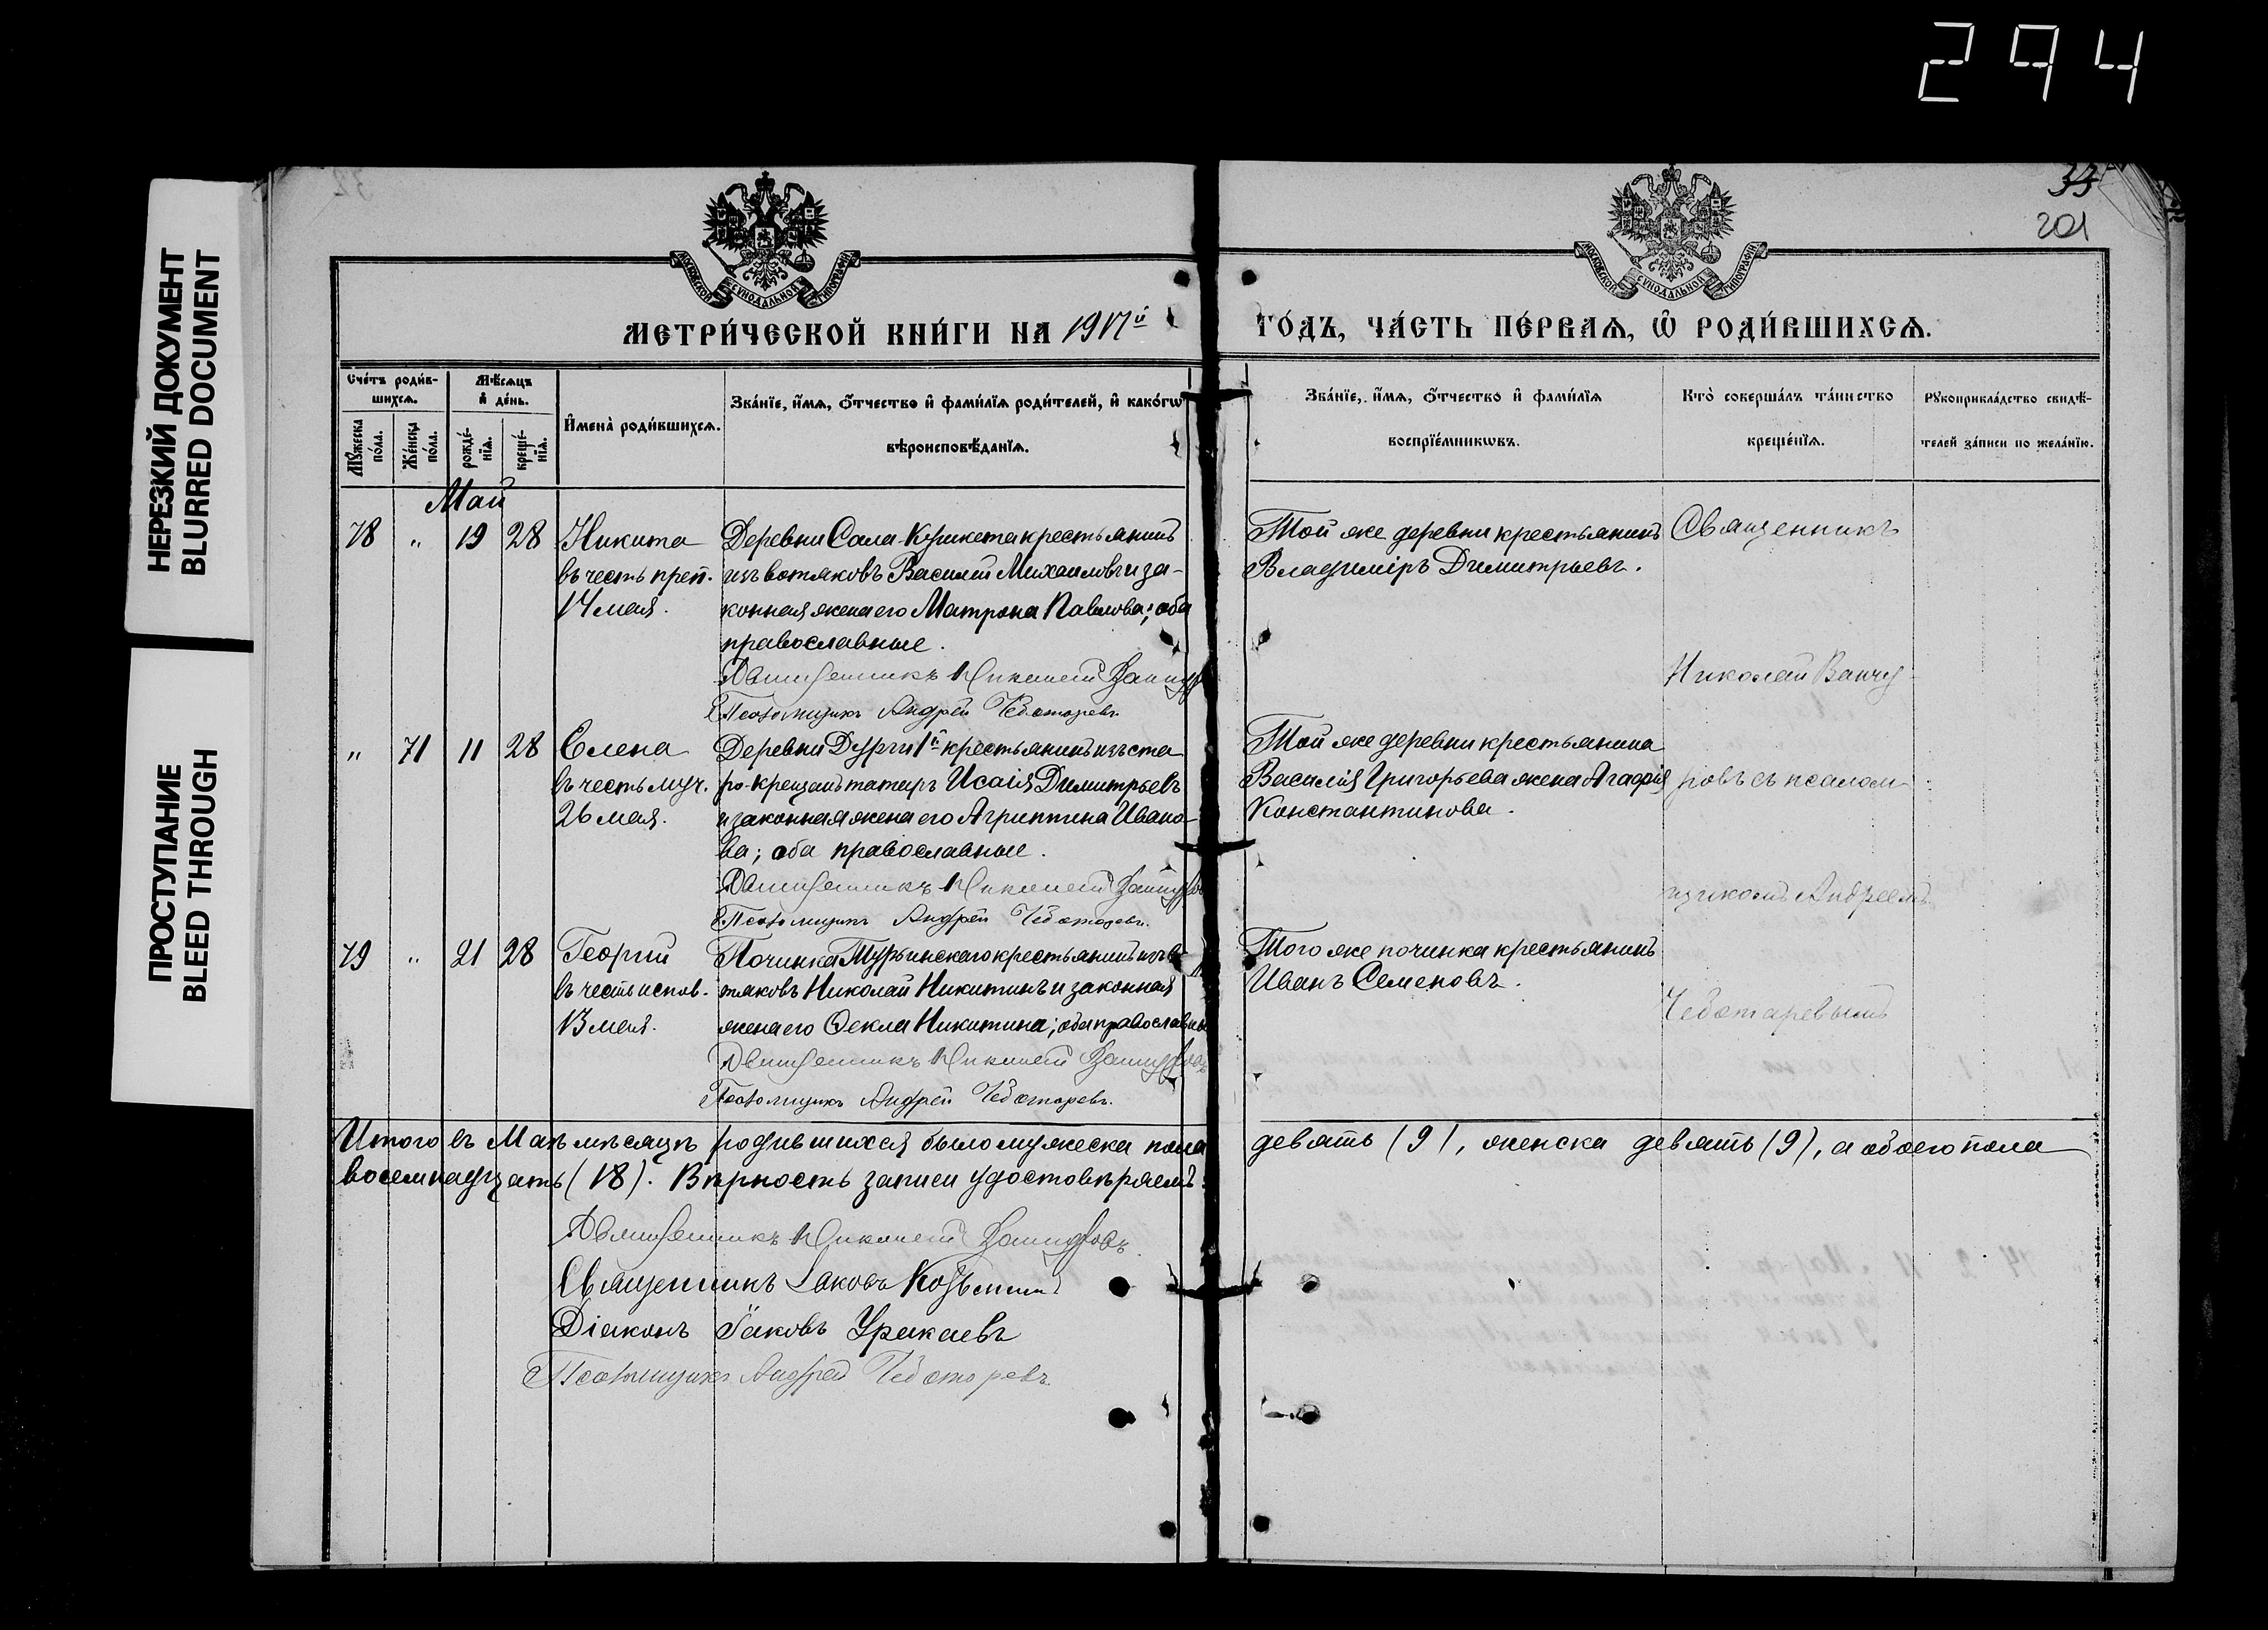 294
НЕРЕЗКИЙ ДОКУМЕНТ
BLURRED DOCUMENT
ПРОСТУПАНИЕ
BLEED THROUGH
33
201
МОСКОВСКОЙ СѴНОДАЛЬНОЙ ТИПОГРАФІИ
МОСКОВСКОЙ СѴНОДАЛЬНОЙ ТИПОГРАФІИ
МЕТРИ́ЧЕСКОЙ КНИ́ГИ НА 1917й
ГО́ДЪ, ЧА́СТЬ ПЕ́РВАѦ, Ѡ҆ РОДИ́ВШИХСѦ.
Сче́тъ роди́в-
шихсѧ.
Мѣ́сѧцъ
и҆ де́нь.
Мꙋ́жеска по́ла.
Же́нска по́ла.
рожде́-
нїѧ.
креще́-
нїѧ.
И҆мена̀ роди́вшихсѧ.
Зва́нїе, и҆́мѧ, ѻ҆́тчество и҆ фами́лїѧ роди́телей, и҆ како́гѡ
вѣроисповѣ́данїѧ.
Зва́нїе, и҆́мѧ, ѻ҆́тчество и҆ фами́лїѧ
воспрїе́мникѡвъ.
Кто̀ соверша́лъ та́инство
креще́нїѧ.
Рꙋкоприкла́дство свидѣ́-
телей за́писи по жела́нїю.
Май
78 " 19 28 Никита
въ честь преп.
14 мая.
Деревни Сала-Кушкета крестьянинъ
изъ вотяковъ Василій Михаиловъ и за-
конная жена его Матрона Павлова; оба
православные.
Священникъ Николай
Псаломщикъ Андрей Чеботаревъ.
Той же деревни крестьянинъ
Владиміръ Димитрьевъ.
Священникъ
Николай
" 71 11 28 Елена
въ честь муч.
26 мая.
Деревни 1й крестьянинъ изъ ста
ро-крещенъ татаръ Исаія Димитрьевъ
и законная жена его Агриппина Ивано-
ва; оба православные.
Священникъ Николай
Псаломщикъ Андрей Чеботаревъ.
Той же деревни крестьянина
Василія Григорьева жена Агафія
Константинова.
ровъ съ псалом-
щикомъ Андреемъ
79 " 21 28 Георгій
въ честь испов.
13 мая.
Починка Турьинскаго крестьянинъ изъ во
тяковъ Николай Никитинъ и законная
жена его Ѳекла Никитина; оба православны
Священникъ Николай
Псаломщикъ Андрей Чеботаревъ.
Того же починка крестьянинъ
Иванъ Семеновъ.
Чеботаревымъ
Итого въ Маѣ мѣсяцѣ родившихся было мужеска пола девять (9), женска девять (9), а обоего пола
восемнадцать (18). Вѣрность записи удостовѣряемъ:
Священникъ Николай
Священникъ Іаковъ
Діаконъ Іаковъ Уракаевъ
Псаломщикъ Андрей Чеботаревъ.